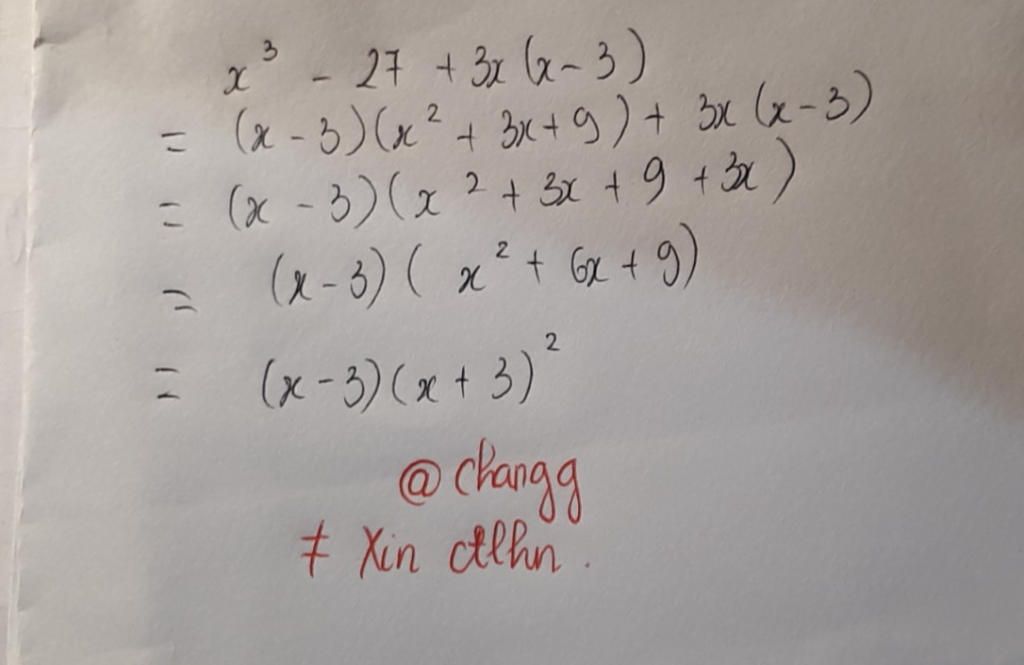 x³ - 27 + 3x (x - 3)
= (x - 3)(x² + 3x + 9) + 3x (x - 3)
= (x - 3)(x² + 3x + 9 + 3x)
= (x - 3)(x² + 6x + 9)
= (x - 3)(x + 3)²
@changg
≠ Xin ctlhn.